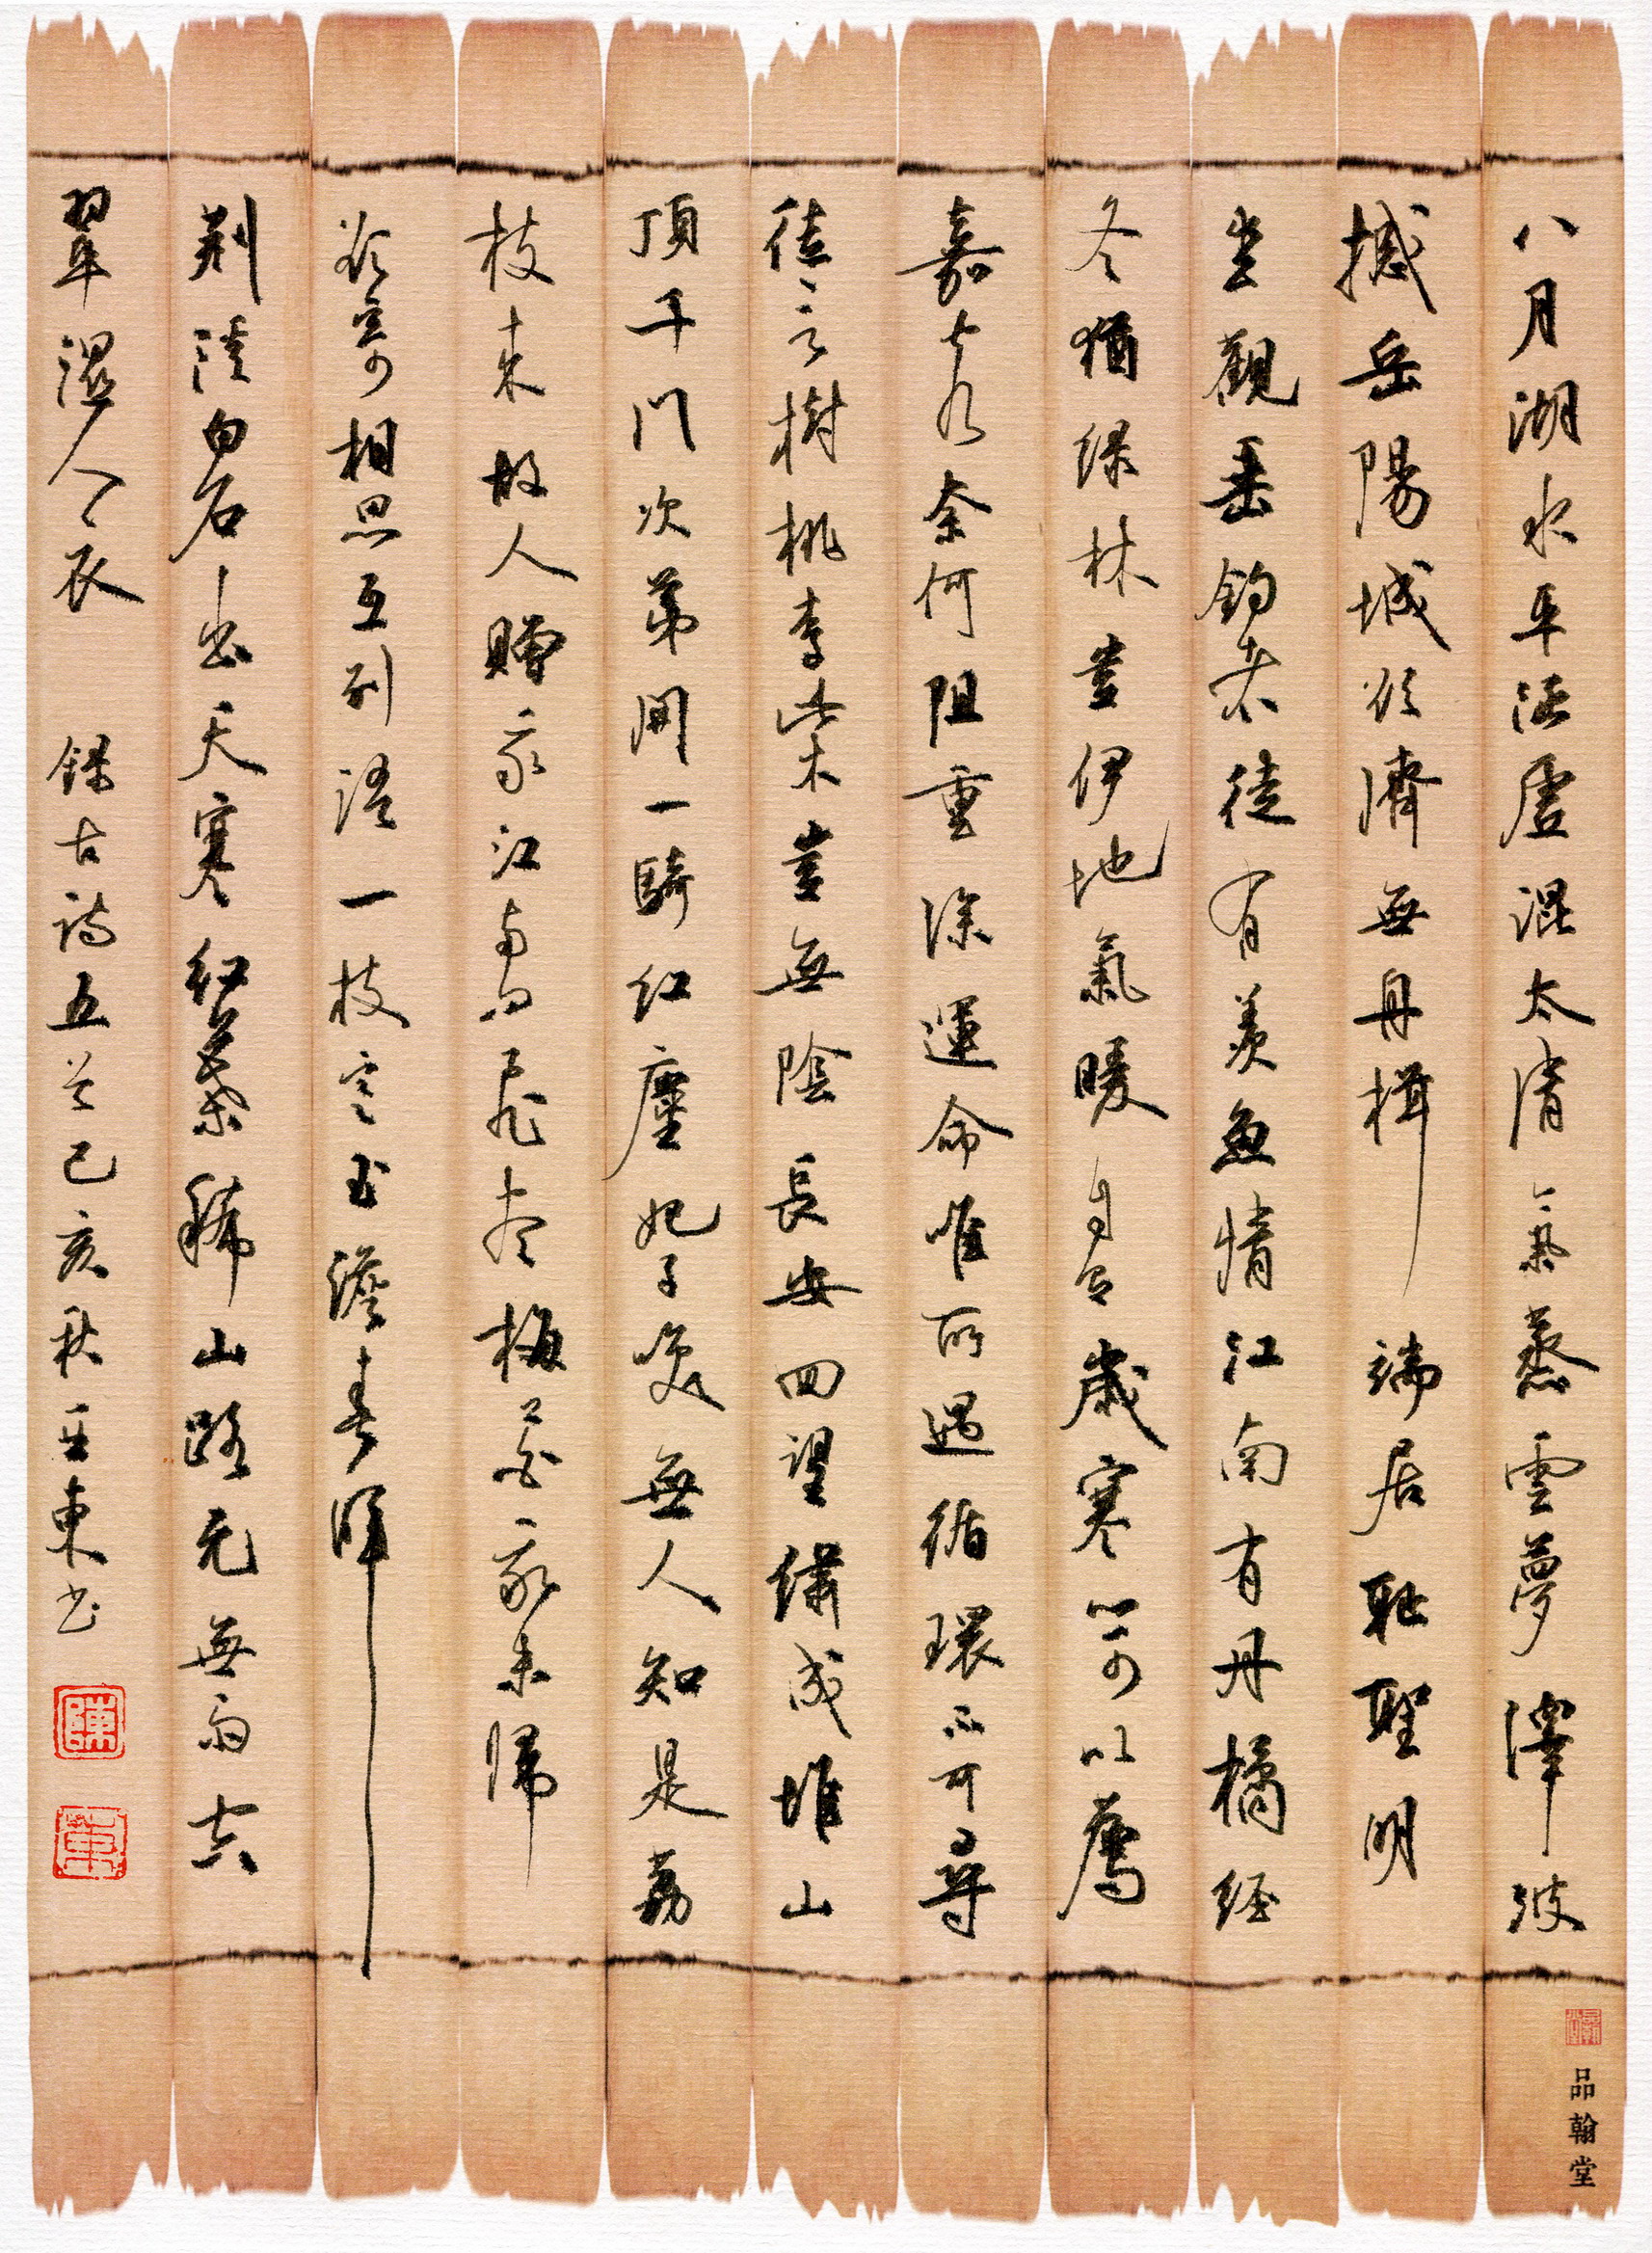 八月湖水平涵虛混太清氣蒸雲夢澤波
撼岳陽城欲濟無舟楫端居恥聖明
坐觀垂釣者徒有羨魚情江南有丹橘經
冬猶綠林豈伊地氣暖自有歲寒心可以薦
嘉客奈何阻重深運命唯所遇循環不可尋
徒言樹桃李此木豈無陰長安回望繡成堆山
頂千門次第開一騎紅塵妃子笑無人知是荔
枝來故人贈我江南句飛盡梅花我未歸
欲寄相思无別語一枝寒玉澹春暉
荊溪白石出天寒紅葉稀山路元無雨空
翠濕人衣 錄古詩五首己亥秋東书
陳
東
品翰堂